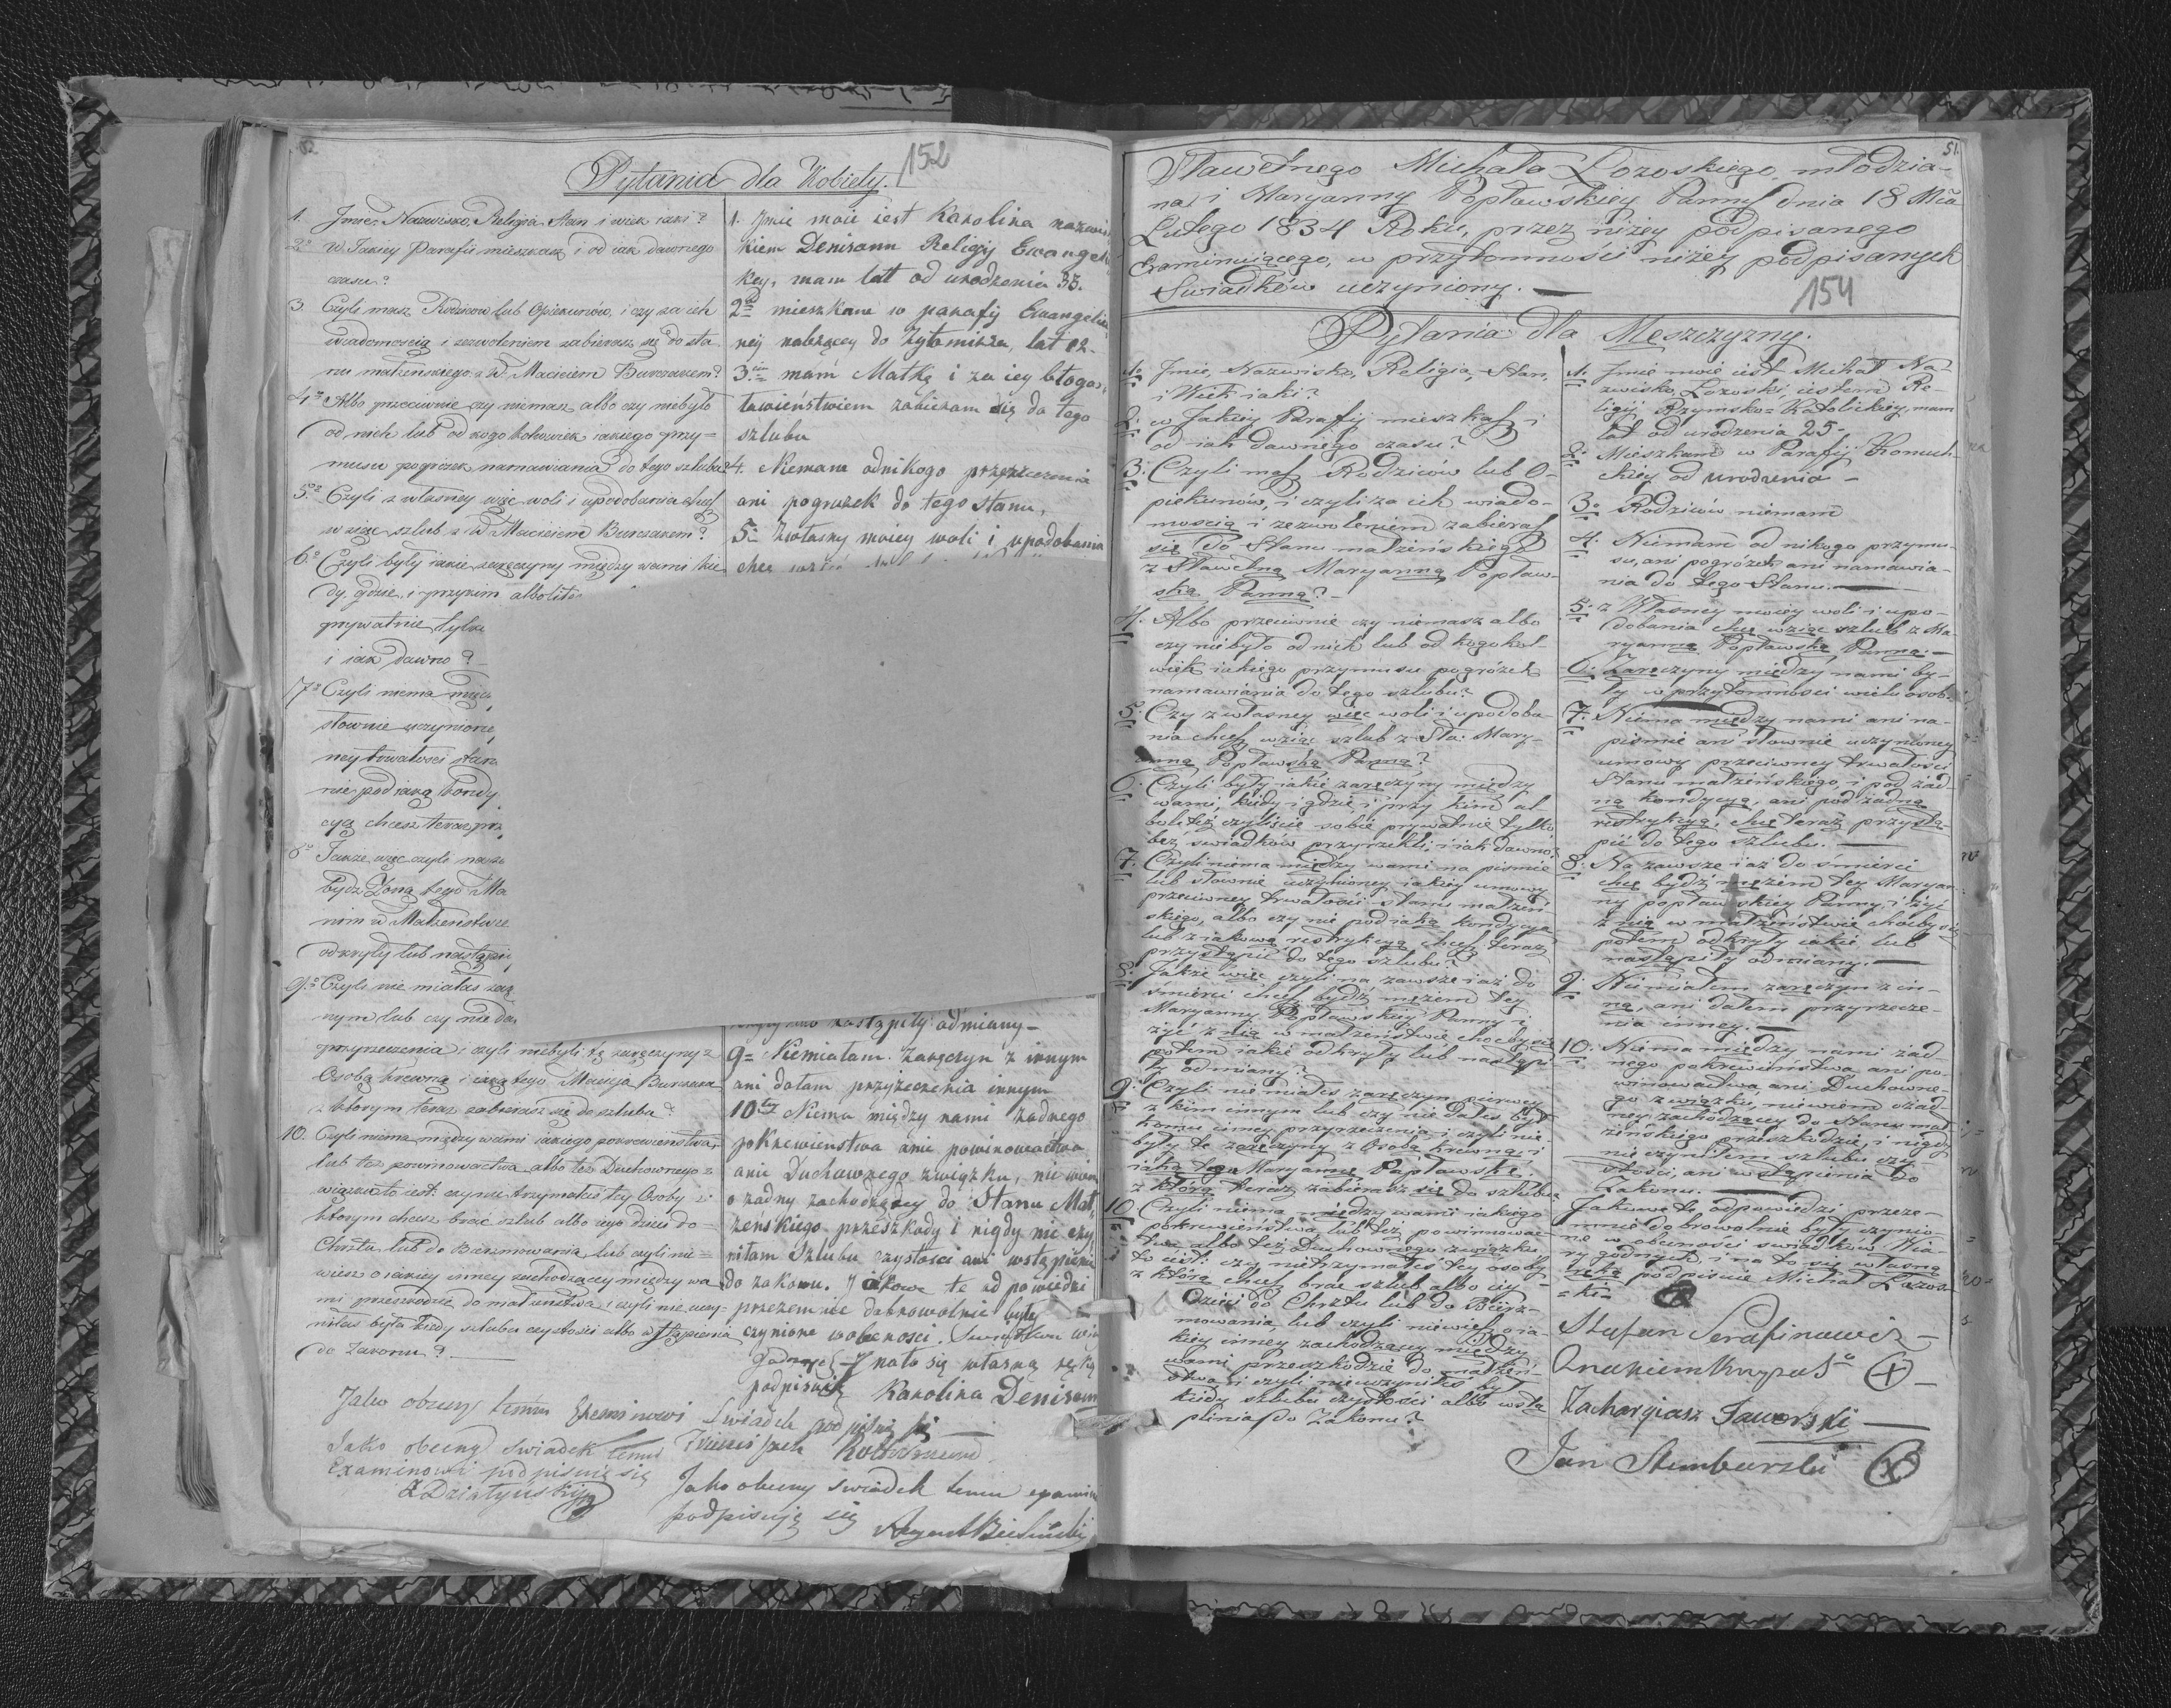 52
152
Pytania dla Kobiety.
1. Jmie, Nazwisko, Religia Stan i wiek iaki?
2o W Jakiey Parafii mieszkasz i od iak dawnego
czasu?
3. Czyli masz Rodzicow lub Opiekunów, i czy za ich
wiadomością i zezwoleniem zabierasz się do sta
nu małżeńskiego z W Macieiem Burczakem?
4o Albo przeciwnie czy niemasz albo czy niebyło
od nich lub od kogo kolwiek iakiego przy=
musu pogrozek namawiania do tego szlubu?
5o Czyli z własney więc woli i upodobania chcesz
wziąć szlub z W Macieiem Burczakem?
6o Czyli były iakie zaręczyny między wami kie
dy, gdzie, i przykim albolitéz
prywatnie tylko
i iak dawno?
7o Czyli niema między
słownie uczynioney
ney trwałości stanu
nie pod iaką kondy
cyą chcesz teraz prz
8o Jakże więc czyli na za
bydz Zoną tego Ma
nim w Małżenstwie
odkryły lub nastąpiły
9o Czyli nie miałas zarę
nym lub czy nie da
przyrzeczenia i czyli niebyli tę zaręczyny z
Osobą krewną i iaką tego Macieja Burczaka
z ktorym teraz zabierasz się do szlubu?
10. Czyli niema między wami iakiego pokrewienstwa,
lub też powinowactwa albo też Duchownego z
wiązku to iest: czy nie trzymałeś tey Osoby z
ktorym chcesz brać szlub albo iego dzieci do
Chrztu lub do Bierzmowania lub czyli nie=
wiesz o iakiey inney zachodzącey między wa
mi przeszkodzie do małżenstwa i czyli nie uczy=
niłas była kiedy szlubu czystości albo wstąpienia
do Zakonu?
1. Jmie moie iest Karolina nazwis
kiem Denisann Religiy Ewangeli
key, mam lat od urodzenia 33.
2o mieszkam w parafiy Ewangelic
ney nalżącey do Zytomirza, lat 12.
3im mam Matkę i za iey błogos
ławieństwiem zabieram się do tego
szlubu
4. Niemam odnikogo przyrzeczenia
ani pogruzek do tego stanu,
5o Zwłasny moiey woli i upodobania
chcę wziść
nastąpiły odmiany—
9= Niemiałam zaręczyn z innym
ani dałam przyżeczenia innym
10ty Niema między nami żadnego
pokrewienstwa anie powinowactwa
anie Duchawnego związku, nie wiem
o żadny zachodzącey do Stanu Mał,
żeńskiego przeszkody i nigdy nie czy
niłam Szlubu czystości ani wstąpienia
do zakonu. Jakowe te odpowiedzi
przezemnie dobrowolnie były u
czynione wobecnosci. Swiadkow wia
godnych J nato się własną ręką
podpisuię Karolina Denisann
Jako obecny temu Exeminowi Swiadek podpisuię się
Jako obecny swiadek temu
Examinowi podpisuię się
Działyński
Jako obecny swiadek temu examin
podpisuję się
51.
Sławetnego Michała Lozoskiego, młodzia-
na, i Maryanny Popławskiey Panny dnia 18 Mca
Lutego 1834 Roku, przez niżey podpisanego
Examinuiącego, w przytomności niżey podpisanych
Swiadków uczyniony.—
154
Pytania dla Meszczyzny.
1o Jmie, Nazwisko, Religia, Stan,
i Wiek iaki?
2: w Jakiey Parafiy mieszkasz i
od iak dawnego czasu?
3: Czyli masz Rodziców lub O-
piekunów, i czyli za ich wiado-
mością i zezwoleniem zabierasz
się do Stanu małżeńskiego
z Sławetną Maryanną Popław-
ską Panną?—
4. Albo przeciwnie czy niemasz albo
czy niebyło od nich lub od kogo kol-
wiek iakiego przymusu pogrózek
namawiania do tego szlubu?
5. Czy z własney więc woli i upodoba-
nia chcesz wziąc szlub z Sła: Mary-
anną Popławską Panną?
6: Czyli były iakie zaręczyny między
wami, kiedy i gdzie, i przy kim al
bolitéz czyliscie sobie prywatnie tylko
bez swiadków przyrzekli, i iak dawno?
7. Czyli niema między wami na pismie
lub słownie uczynioney iakiey umowy
przeciwney trwałości stanu małżeń-
skiego, albo czy nie pod iaką kondycyą
lub z iakową restrykcyą chcesz teraz
przystąpić do tego szlubu?
8: Jakże więc czyli na zawsze i aż do
śmierci chcesz bydź mężem tey
Maryanny Popławskiey Panny i
żyć z nią w małżeństwie chocby się
potem iakie odkryły lub nastąpi-
ły odmiany?
9: Czyli nie miałeś zaręczyn pierwey
z kim innym lub czy nie dałeś był
komu inney przyrzeczenia, i czyli nie-
były te zaręczyny z Osobą krewną i
iaką tego Maryannę Popławskę
z którą teraz zabierasz się do szlubu
10. Czyli niema między wami iakiego
pokrewieństwa lub też powinowac-
twa albo też duchownego związku
to iest: czy nietrzymałeś tey osoby
z którą chcesz brac szlub albo iey
Dzieci do Chrztu lub do Bierz-
mowania, lub czyli niewiesz o ia-
kiey inney zachodzącey między
wami przeszkodzie do małżeń-
stwa, i czyli nieuczyniłeś był
kiedy szlubu czystości albo wstą
pienia do Zakonu?
1. Jmie moie iest Michał Na-
zwisko Lozoski, iestem Re-
ligiy Rzymsko=Katolickiey, mam
lat od urodzenia 25.
2: Mieszkam w Parafiy
skiey od urodzenia—
3o Rodziców niemam
4. Niemam od nikogo przymu-
su, ani pogrózek ani namawia-
nia do tego Stanu.—
5: z Własney moiey woli i upo-
dobania chcę wziąc szlub z Ma-
ryanną Popławską Panną.—
6: Zaręczyny między nami by-
ły w przytomności wielu osob.
7. Niema między nami ani na-
pismie ani słownie uczynioney
umowy przeciwney trwałosci
Stanu małżeńskiego, i pod żad-
ną kondycyą, ani pod żadną
restrykcyą, chcę teraz przystą-
pić do tego szlubu.—
8: Na zawsze i aż do śmierci
chcę bydź mężem tey Maryan-
ny popławskiey Panny, i żyć
z nią w małżeństwie choćby się
potem odkryły iakie lub
nastąpiły odmiany.—
9: Niemiałem zaręczyn z in-
ną, ani dałem przyrzecze-
nia inney.—
10: Niema między nami żad
nego pokrewieństwa ani po-
winowactwa, ani Duchowne-
go związku, niewiem o żad-
ney zachodzącey do Stanu mał
żeńskiego przeszkodzie, i nigdy
nie czyniłem szlubu czy-
stości, ani wstąpienia do
Zakonu.—
Jakowe te odpowiedzi przeze-
mnie dobrowolnie były uczynio-
ne w obecności swiadków Wia-
ry godnych, i na to się własną
ręką podpisuie Michał Lozos-
=ki=
Stefan Serafinowicz—
Zacharyasz Jaworski—
Jan Stemburski